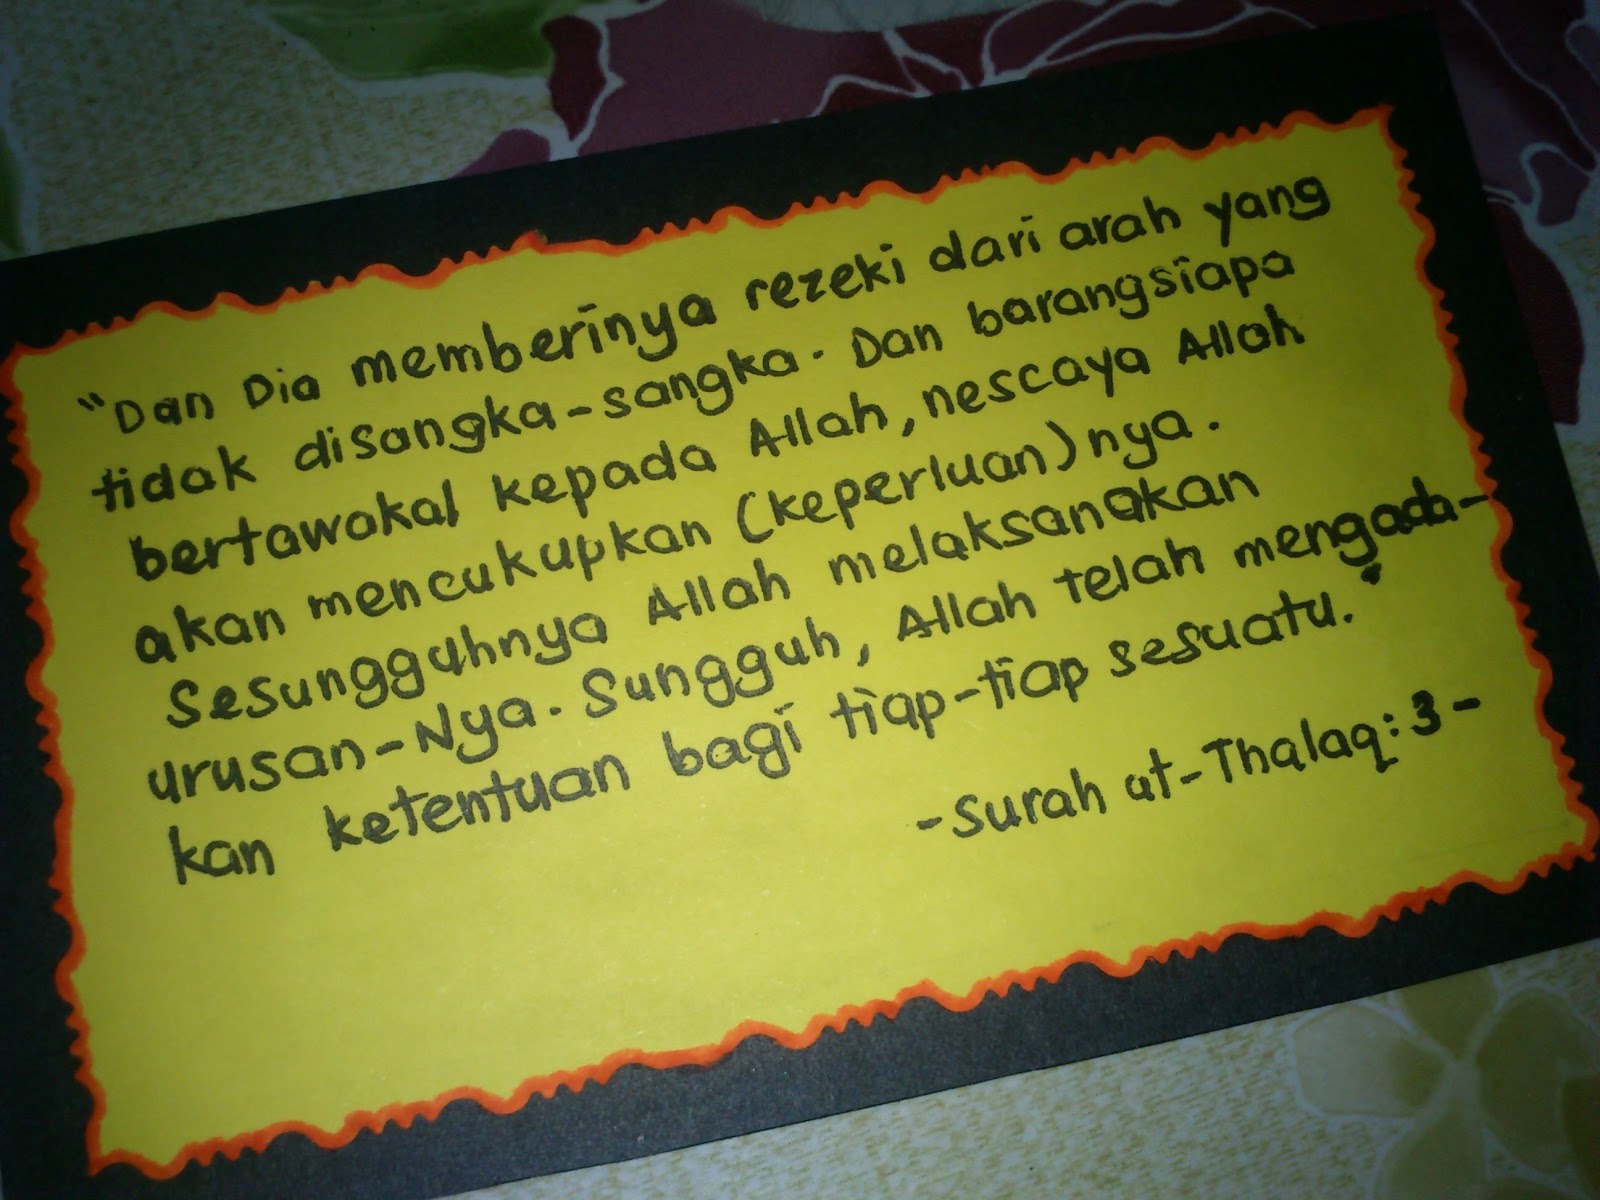 "Dan Dia memberinya rezeki dari arah yang
tidak disangka-sangka. Dan barangsiapa
bertawakal kepada Allah, nescaya Allah
akan mencukupkan (keperluan)nya.
Sesungguhnya Allah melaksanakan
urusan-Nya. Sungguh, Allah telah mengada-
kan ketentuan bagi tiap-tiap sesuatu."
-Surah at-Thalaq:3-